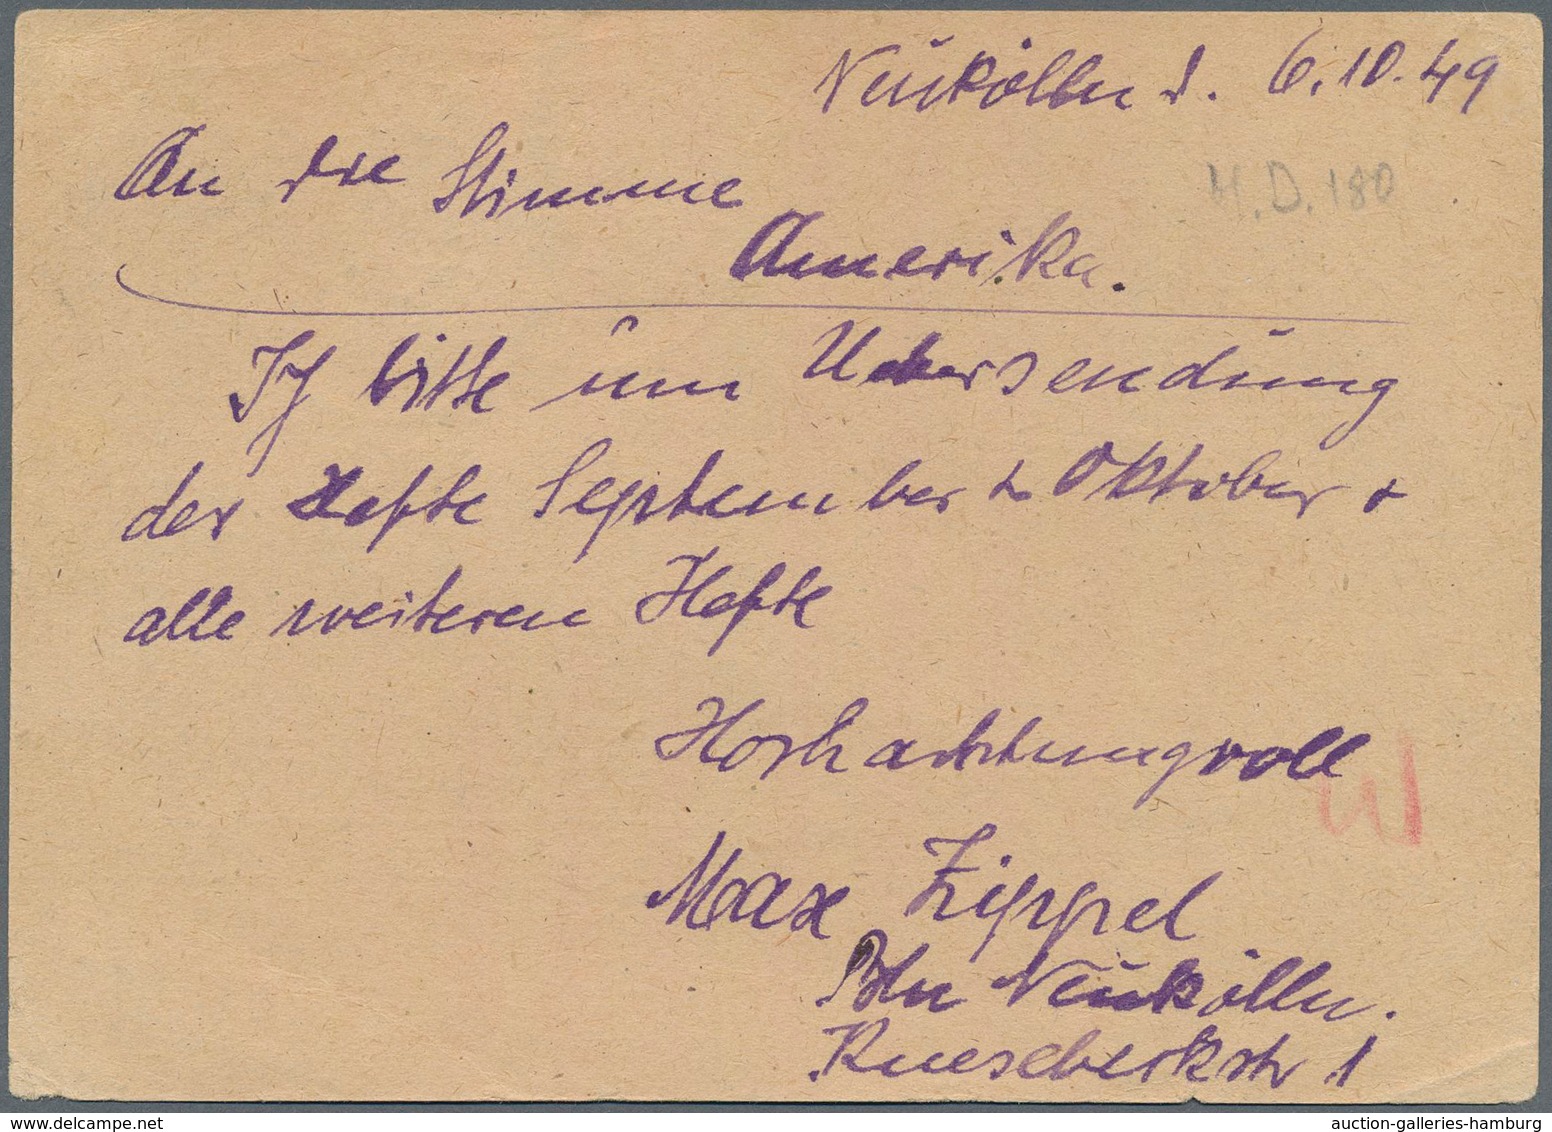 Neukölln d. 6.10.49
An die Stimme
H.D. 180
Amerika.
Ich bitte um Uebersendung
der Hefte September u Oktober +
alle weiteren Hefte
Hochachtungvoll
Max Zippel
Bln Neukölln.
Knesebeckstr 1
auction-galleries-hamburg.com